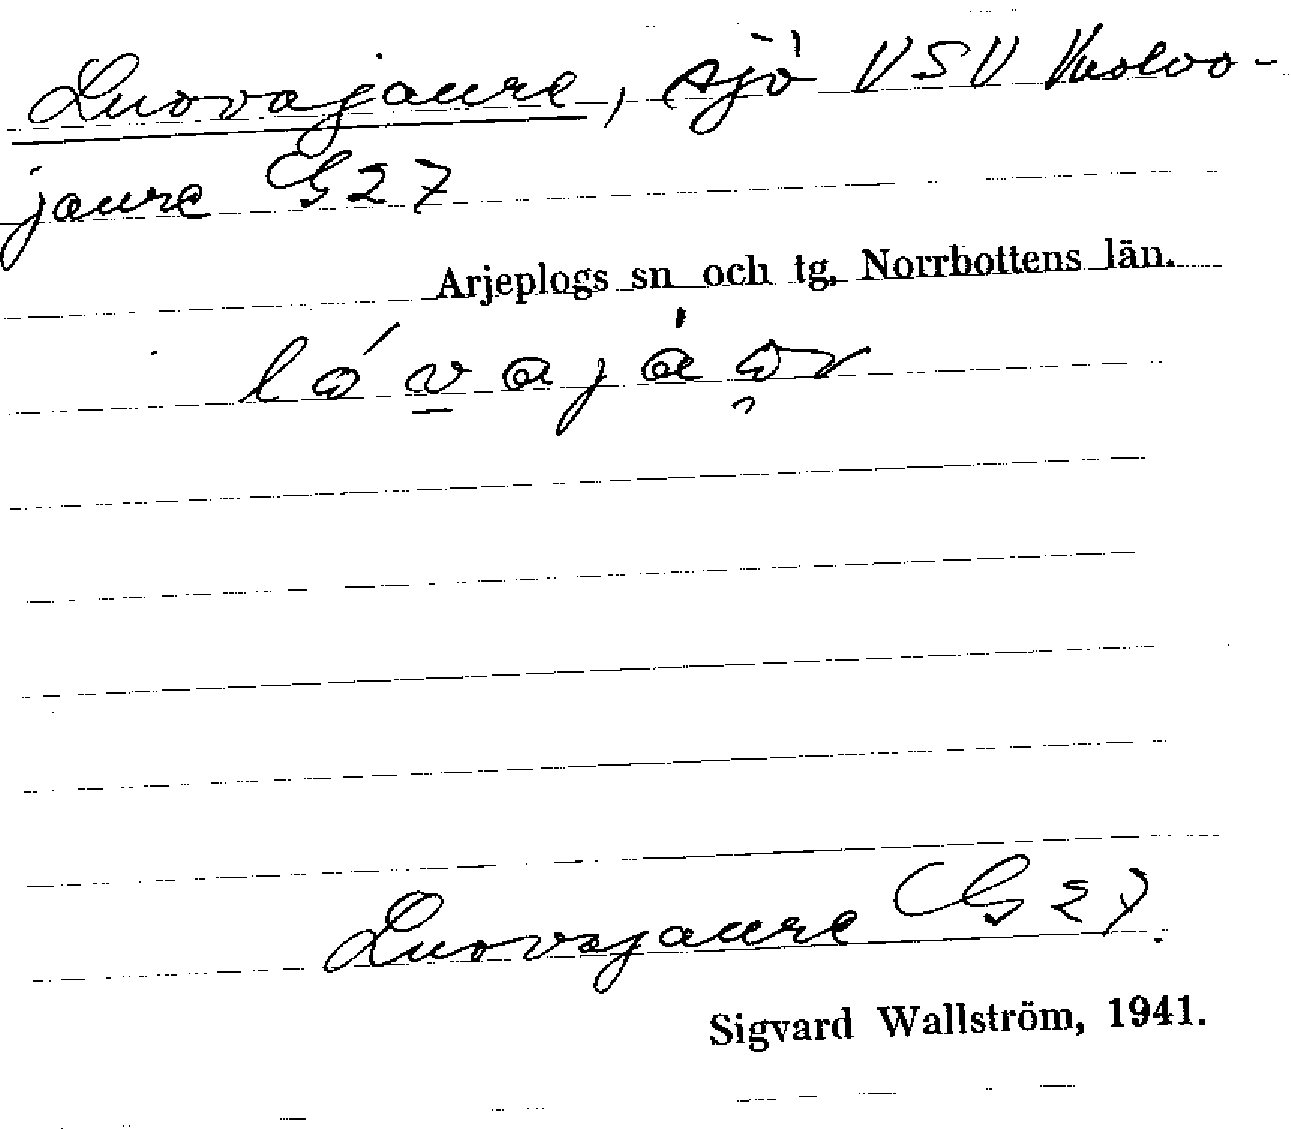 Luovajaure, sjö VSV Vuolvo-
jaure G27
Arjeplogs sn och tg, Norrbottens län.
Luovajaure G 27.
Sigvard Wallström, 1941.